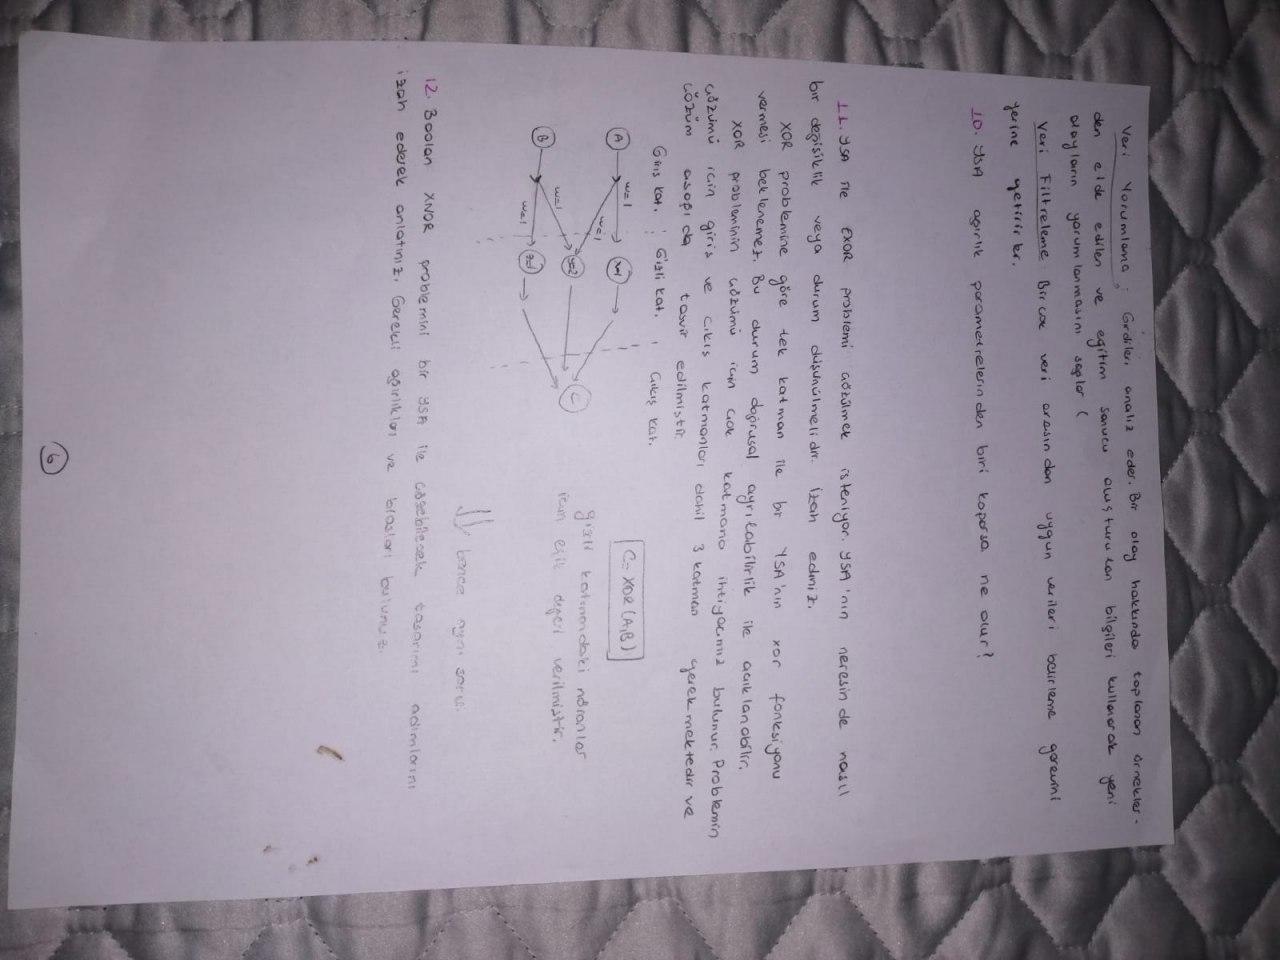 Veri Yorumlama: Girdileri analiz eder. Bir olay hakkında toplanan örnekler-
den elde edilen ve eğitim sonucu oluşturulan bilgileri kullanarak yeni
olayların yorumlanmasını sağlar (
Veri Filtreleme: Bir çok veri arasından uygun verileri belirleme görevini
yerine getirirler.
10. YSA ağırlık parametrelerinden biri koparsa ne olur?
11. YSA ile EXOR problemi çözülmek isteniyor. YSA'nın neresinde nasıl
bir değişiklik veya durum düşünülmelidir. İzah ediniz.
XOR problemine göre tek katman ile bir YSA'nın xor fonksiyonu
vermesi beklenemez. Bu durum doğrusal ayrılabilirlik ile açıklanabilir.
XOR probleminin çözümü için çok katmana ihtiyacımız bulunur. Problemin
çözümü için giriş ve çıkış katmanları dahil 3 katman gerekmektedir ve
çözüm aşağıda tasvir edilmiştir.
Giriş kat. Gizli kat. Çıkış kat.
A w=1
w=1
C
C = XOR (A,B)
B w=1
w=1
gizli katmandaki nöronlar
için eşik değeri verilmiştir.
bence aynı soru.
12. Boolan XNOR problemini bir YSA ile çözebilecek tasarımı adımlarını
izah ederek anlatınız. Gerekli ağırlıkları ve biasları bulunuz.
6